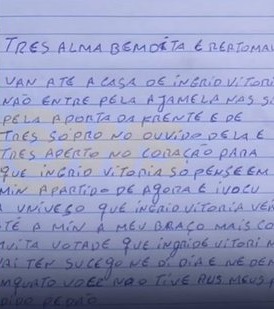 TRES ALMA BEMDITA E REATOMAU
VAN ATÉ A CASA DE INGRID VITORI
NÃO ENTRE PELA AJAMELA NAS S
PELA APORTA DA FRENTE E DE
TRES SOPRO NO OUVIDO DELA E
TRES APERTO NO CORAÇÃO PARA
QUE INGRID VITORIA SO PENSE EM
MIN APARTIDO DE AGORA E IVOCU
A UNIVESO QUE INGRID VITORIA VEN
ATÉ A MIN A MEU BRAÇO MAIS CO
MUITA VOTADE QUE INGRIDE VITORI N
VAI TEN SUCEGO NE DI DIA E NE DE N
ENQUATO VOCE NÃO TIVE AUS MEUS P
PEDRO